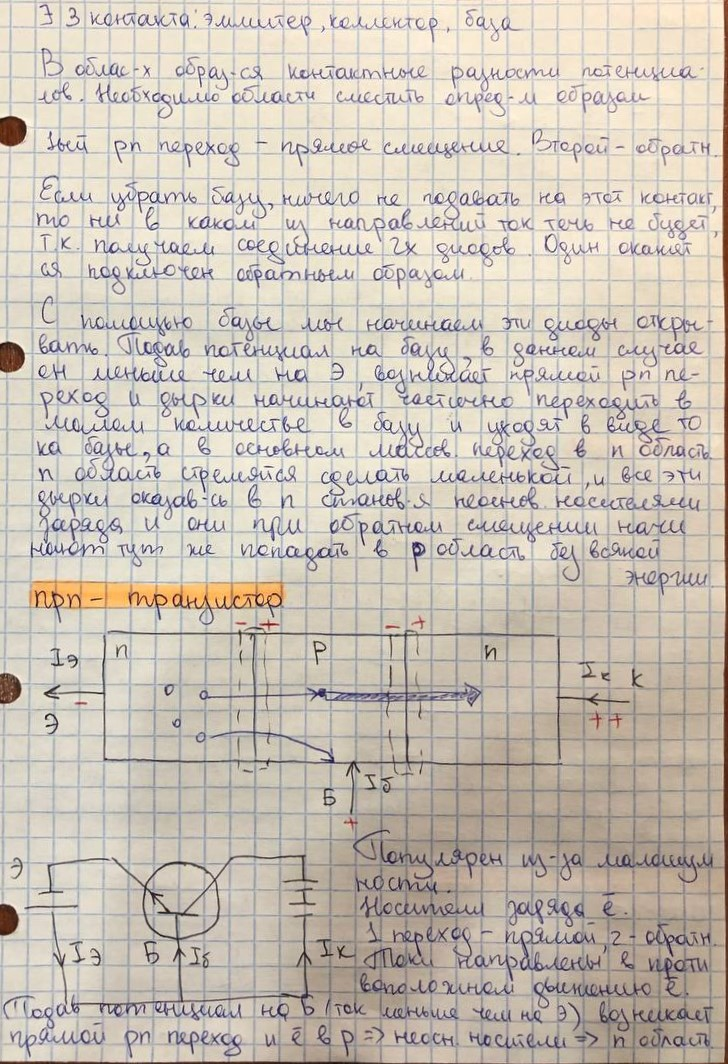 ∃ 3 контакта: эммитер, коллектор, база
В облас-х образ-ся контактные разности потенциа-
лов. Необходимо области сместить опред-м образом
1ый pn переход – прямое смещение. Второй – обратн.
Если убрать базу, ничего не подавать на этот контакт,
то ни в каком из направлений ток течь не будет,
т.к. получаем соединение 2х диодов. Один окажет
ся подключен обратным образом.
С помощью базы мы начинаем эти диоды откры-
вать. Подав потенциал на базу, в данном случае
он меньше чем на Э, возникает прямой pn пе-
реход и дырки начинают частично переходить в
малом количестве в базу и уходят в виде то
ка базы, а в основном массов. переход в n область.
n область стремятся сделать маленькой, и все эти
дырки оказав-сь в n станов-я неоснов. носителями
заряда и они при обратном смещении начи
нают тут же попадать в p область без всякой
энергии
npn – транзистор
- + - +
n p n
Iэ Iк К
Э - + +
Б Iб
+
Э
Iэ Б Iб Iк
Популярен из-за малошум
ности.
Носители заряда ē.
1 переход – прямой, 2 – обратн.
Токи направлены в проти
воположном движению ē.
(Подав потенциал на Б (ток меньше чем на Э) возникает
прямой pn переход и ē в p => неосн. носители => n область